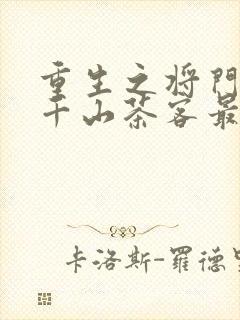 重生之将门
千山茶客最
卡洛斯-羅德